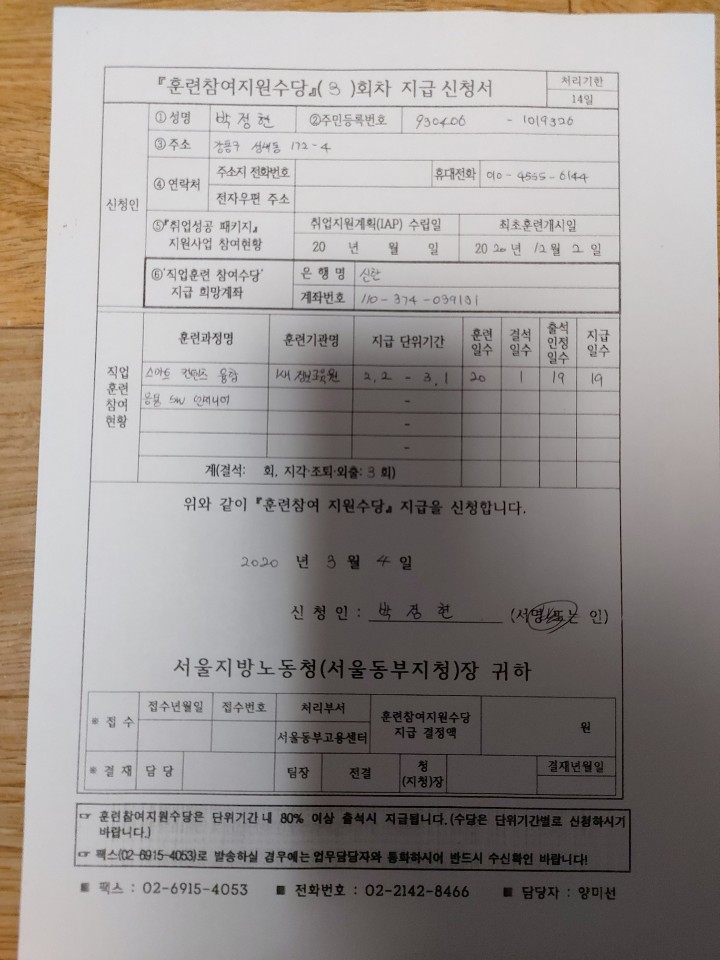 『훈련참여지원수당』( 3 )회차 지급 신청서
처리기한
14일
신청인
①성명 박정현 ②주민등록번호 930406 - 1019326
③주소 강동구 성내동 172-4
④연락처 주소지 전화번호 휴대전화 010-4555-6144
전자우편 주소
⑤『취업성공 패키지』 지원사업 참여현황
취업지원계획(IAP) 수립일 최초훈련개시일
20 년 월 일 2020년 12월 2일
⑥'직업훈련 참여수당' 지급 희망계좌
은행명 신한
계좌번호 110-374-039131
직업훈련참여현황
훈련과정명 훈련기관명 지급 단위기간 훈련일수 결석일수 출석인정일수 지급일수
스마트 컨텐츠 융합 2.2 - 3.1 20 1 19 19
응용 SW 엔지니어 -
-
-
계(결석: 회, 지각·조퇴·외출: 3 회)
위와 같이 『훈련참여 지원수당』 지급을 신청합니다.
2020 년 3 월 4 일
신청인 : 박정현 (서명 또는 인)
서울지방노동청(서울동부지청)장 귀하
※ 접수 접수년월일 접수번호 처리부서 훈련참여지원수당 지급 결정액 원
서울동부고용센터
※ 결재 담당 팀장 전결 청(지청)장 결재년월일
☞ 훈련참여지원수당은 단위기간 내 80% 이상 출석시 지급됩니다.(수당은 단위기간별로 신청하시기
바랍니다.)
☞ 팩스(02-6915-4053)로 발송하실 경우에는 업무담당자와 통화하시어 반드시 수신확인 바랍니다!
■ 팩스 : 02-6915-4053 ■ 전화번호 : 02-2142-8466 ■ 담당자 : 양미선